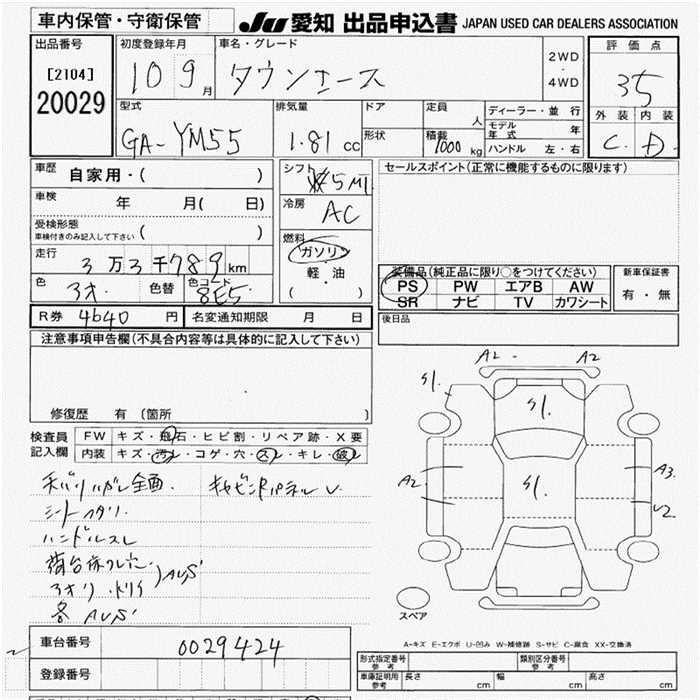 車内保管・守衛保管
JU 愛知 出品申込書 JAPAN USED CAR DEALERS ASSOCIATION
出品番号
[2104]
20029
初度登録年月
10 9月
車名・グレード
タウンエース
2WD
・
4WD
評価点
3.5
外装 内装
C. D.
型式
GA-YM55
排気量
1.81 cc
ドア
形状
定員
人
積載
1000 kg
ディーラー・並行
モデル年式 年
ハンドル 左・右
車歴
自家用・( )
車検 年 月( 日)
受検形態
車検付きのみ記入して下さい ( )
走行
3万3千789km
色
アオ.
色替
色コード
8E5
シフト
5MT
冷房
AC
燃料
ガソリン
軽・油
( )
セールスポイント(正常に機能するものに限ります)
装備品(純正品に限り○をつけてください)
PS PW エアB AW
SR ナビ TV カワシート
新車保証書
有・無
R券 4640 円 名変通知期限 月 日
後日品
注意事項申告欄(不具合内容等は具体的に記入して下さい)
修復歴 有 (箇所 )
検査員
記入欄
FW キズ・飛石・ヒビ割・リペア跡・X要
内装 キズ・汚レ・コゲ・穴・スレ・キレ・破レ
シートヘタリ.
ハンドルスレ
各 AUS'
A2 - A2
S1.
S1.
S1.
A2
A3
U2.
スペア
A-キズ E-エクボ U-凹み W-補修跡 S-サビ C-腐食 XX-交換済
車台番号 0029424
登録番号
形式指定番号
参考
類別区分番号
参考
車庫証明用
参考
長さ cm
幅 cm
高さ cm